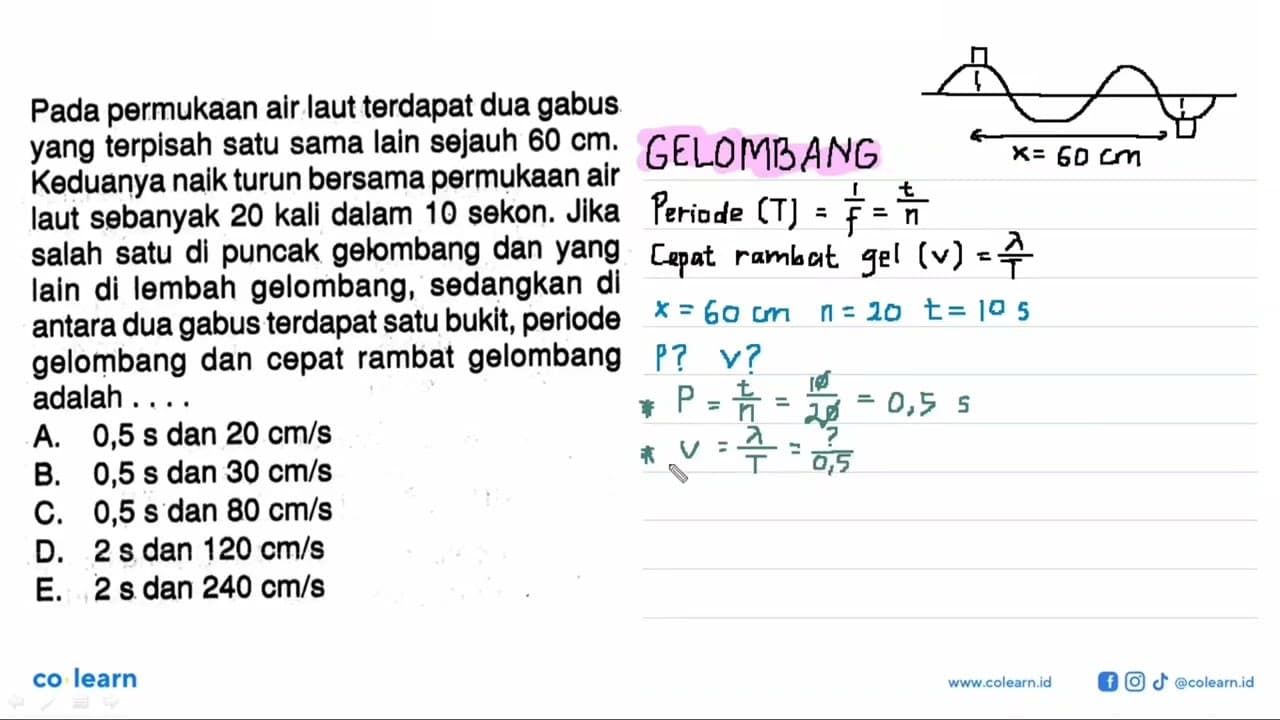 Pada permukaan air laut terdapat dua gabus
yang terpisah satu sama lain sejauh 60 cm.
Keduanya naik turun bersama permukaan air
laut sebanyak 20 kali dalam 10 sekon. Jika
salah satu di puncak gelombang dan yang
lain di lembah gelombang, sedangkan di
antara dua gabus terdapat satu bukit, periode
gelombang dan cepat rambat gelombang
adalah . . . .
A. 0,5 s dan 20 cm/s
B. 0,5 s dan 30 cm/s
C. 0,5 s dan 80 cm/s
D. 2 s dan 120 cm/s
E. 2 s dan 240 cm/s
x = 60 cm
GELOMBANG
Periode (T) = 1/f = t/n
Cepat rambat gel (v) = λ/T
x = 60 cm n = 20 t = 10 s
P? v?
* P = t/n = 10/20 = 0,5 s
* v = λ/T = ?/0,5
co learn
www.colearn.id
@colearn.id